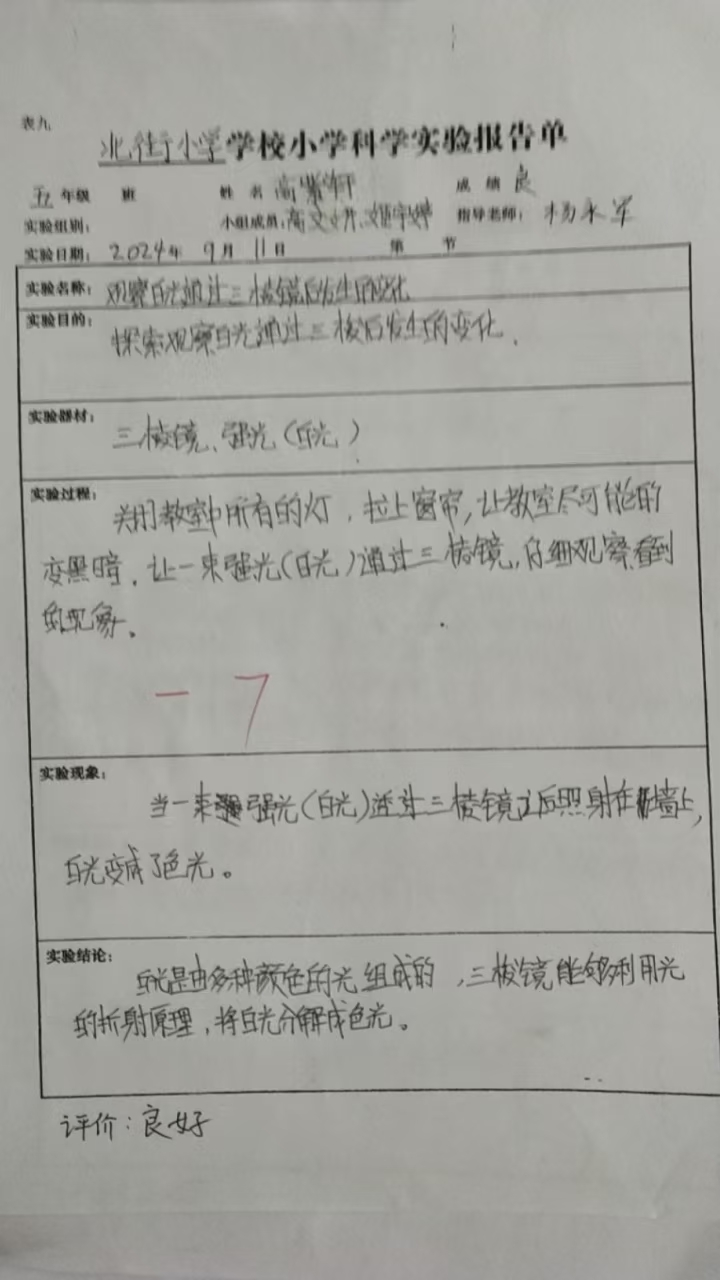 表九
北街小学学校小学科学实验报告单
五年级 班 姓名 高紫轩 成绩 良
实验组别: 小组成员: 高文 姬宇婷 指导老师: 杨永军
实验日期: 2024年 9月 11日 第 节
实验名称: 观察白光通过三棱镜后发生的变化
实验目的: 探索观察白光通过三棱后发生的变化.
实验器材: 三棱镜、强光(白光)
实验过程: 关闭教室中所有的灯,拉上窗帘,让教室尽可能的
变黑暗,让一束强光(白光)通过三棱镜,仔细观察看到
的现象.
一 7
实验现象:
当一束强光(白光)通过三棱镜之后照射在墙上,
白光变成了色光。
实验结论: 白光是由多种颜色的光组成的,三棱镜能够利用光
的折射原理,将白光分解成色光。
评价:良好